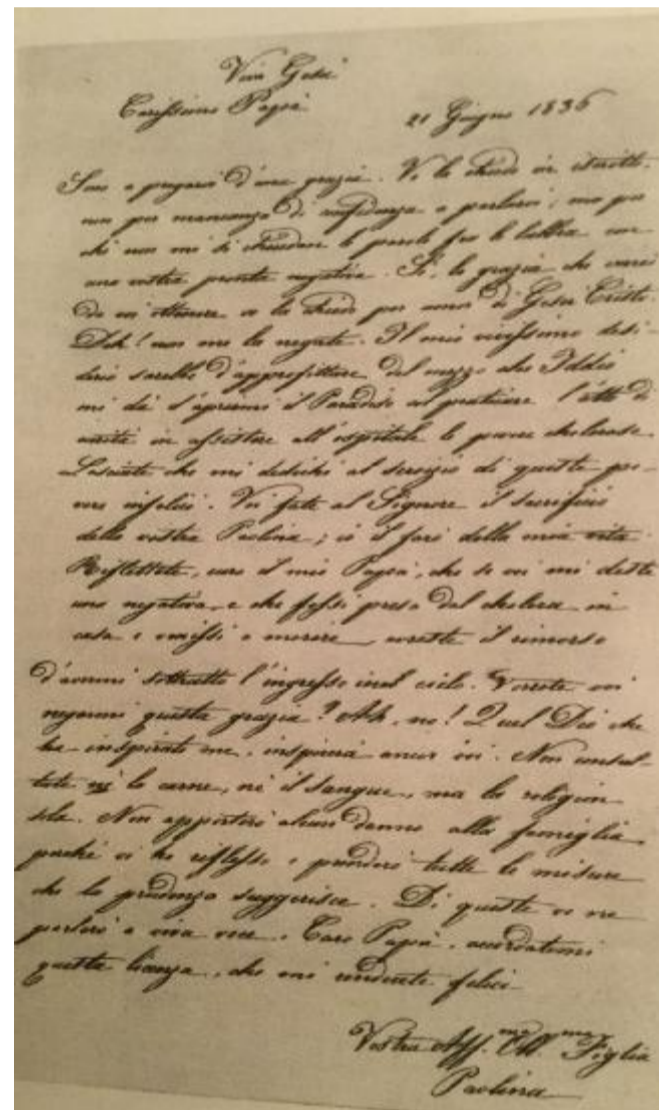 Viva Gesù
Carissimo Papà
21 Giugno 1836
Sono a pregarvi d'una grazia. Ve la chiedo in iscritto.
non per mancanza di confidenza a parlarvi; ma per
chè non mi si chiudan le parole fra le labbra con
una vostra pronta negativa. Sì, la grazia che vorrei
da voi ottenere ve la chiedo per amor di Gesù Cristo.
Deh! non me la negate. Il mio vivissimo desi-
derio sarebbe d'approfittare del mezzo che Iddio
mi dà d'aprirmi il Paradiso col praticare l'atto di
carità in assistere all'ospitale le povere cholerose.
Lasciate che mi dedichi al servizio di queste po-
vere infelici. Voi fate al Signore il sacrificio
della vostra Paolina; io il farò della mia vita
Riflettete, caro il mio Papà, che se voi mi deste
una negativa, e che fossi presa dal cholera in
casa e venissi a morire avreste il rimorso
d'avermi sottratto l'ingresso in ciel. Vorreste voi
negarmi questa grazia? Ah, no! Quel Dio che
ha inspirato me, inspirerà ancor voi. Non consul-
tate nè la carne, nè il sangue, ma la religion
sola. Non apporterò alcun danno alla famiglia
perchè vi ho riflesso e prenderò tutte le misure
che la prudenza suggerisce. Di queste ve ne
parlerò a viva voce. Caro Papà, accordatemi
questa licenza, che mi renderete felice
Vostra Aff.ma Obb.ma Figlia
Paolina